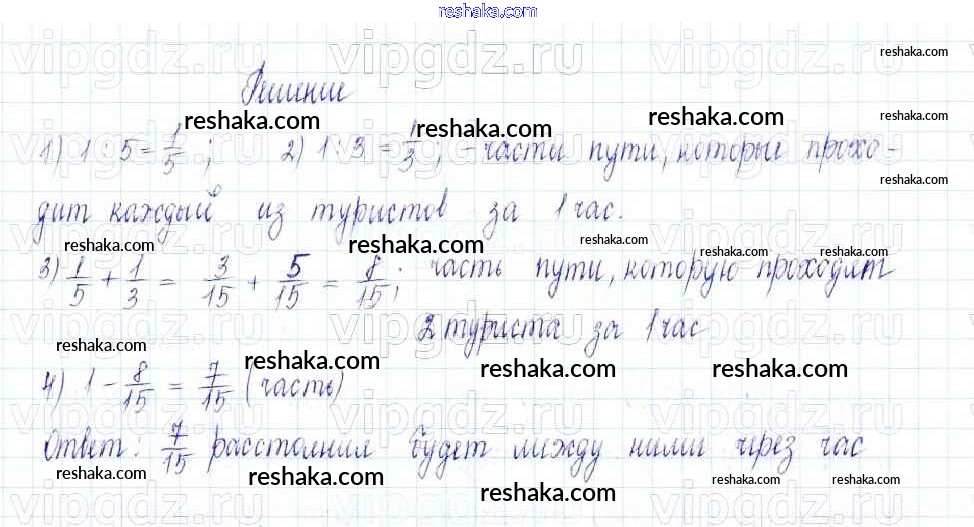 reshaka.com
vipgdz.ru vipgdz.ru vipgdz.ru
reshaka.com
Решение
reshaka.com reshaka.com reshaka.com reshaka.com
1) 1 : 5 = 1/5 ; 2) 1 : 3 = 1/3 ; - части пути, которые прохо-
reshaka.com
дит каждый из туристов за 1 час.
reshaka.com reshaka.com reshaka.com reshaka.com reshaka.com
3) 1/5 + 1/3 = 3/15 + 5/15 = 8/15 ; часть пути, которую проходят
2 туриста за 1 час
reshaka.com reshaka.com reshaka.com reshaka.com
4) 1 - 8/15 = 7/15 (часть)
Ответ: 7/15 расстояния будет между ними чрез час
reshaka.com reshaka.com reshaka.com reshaka.com reshaka.com
reshaka.com reshaka.com